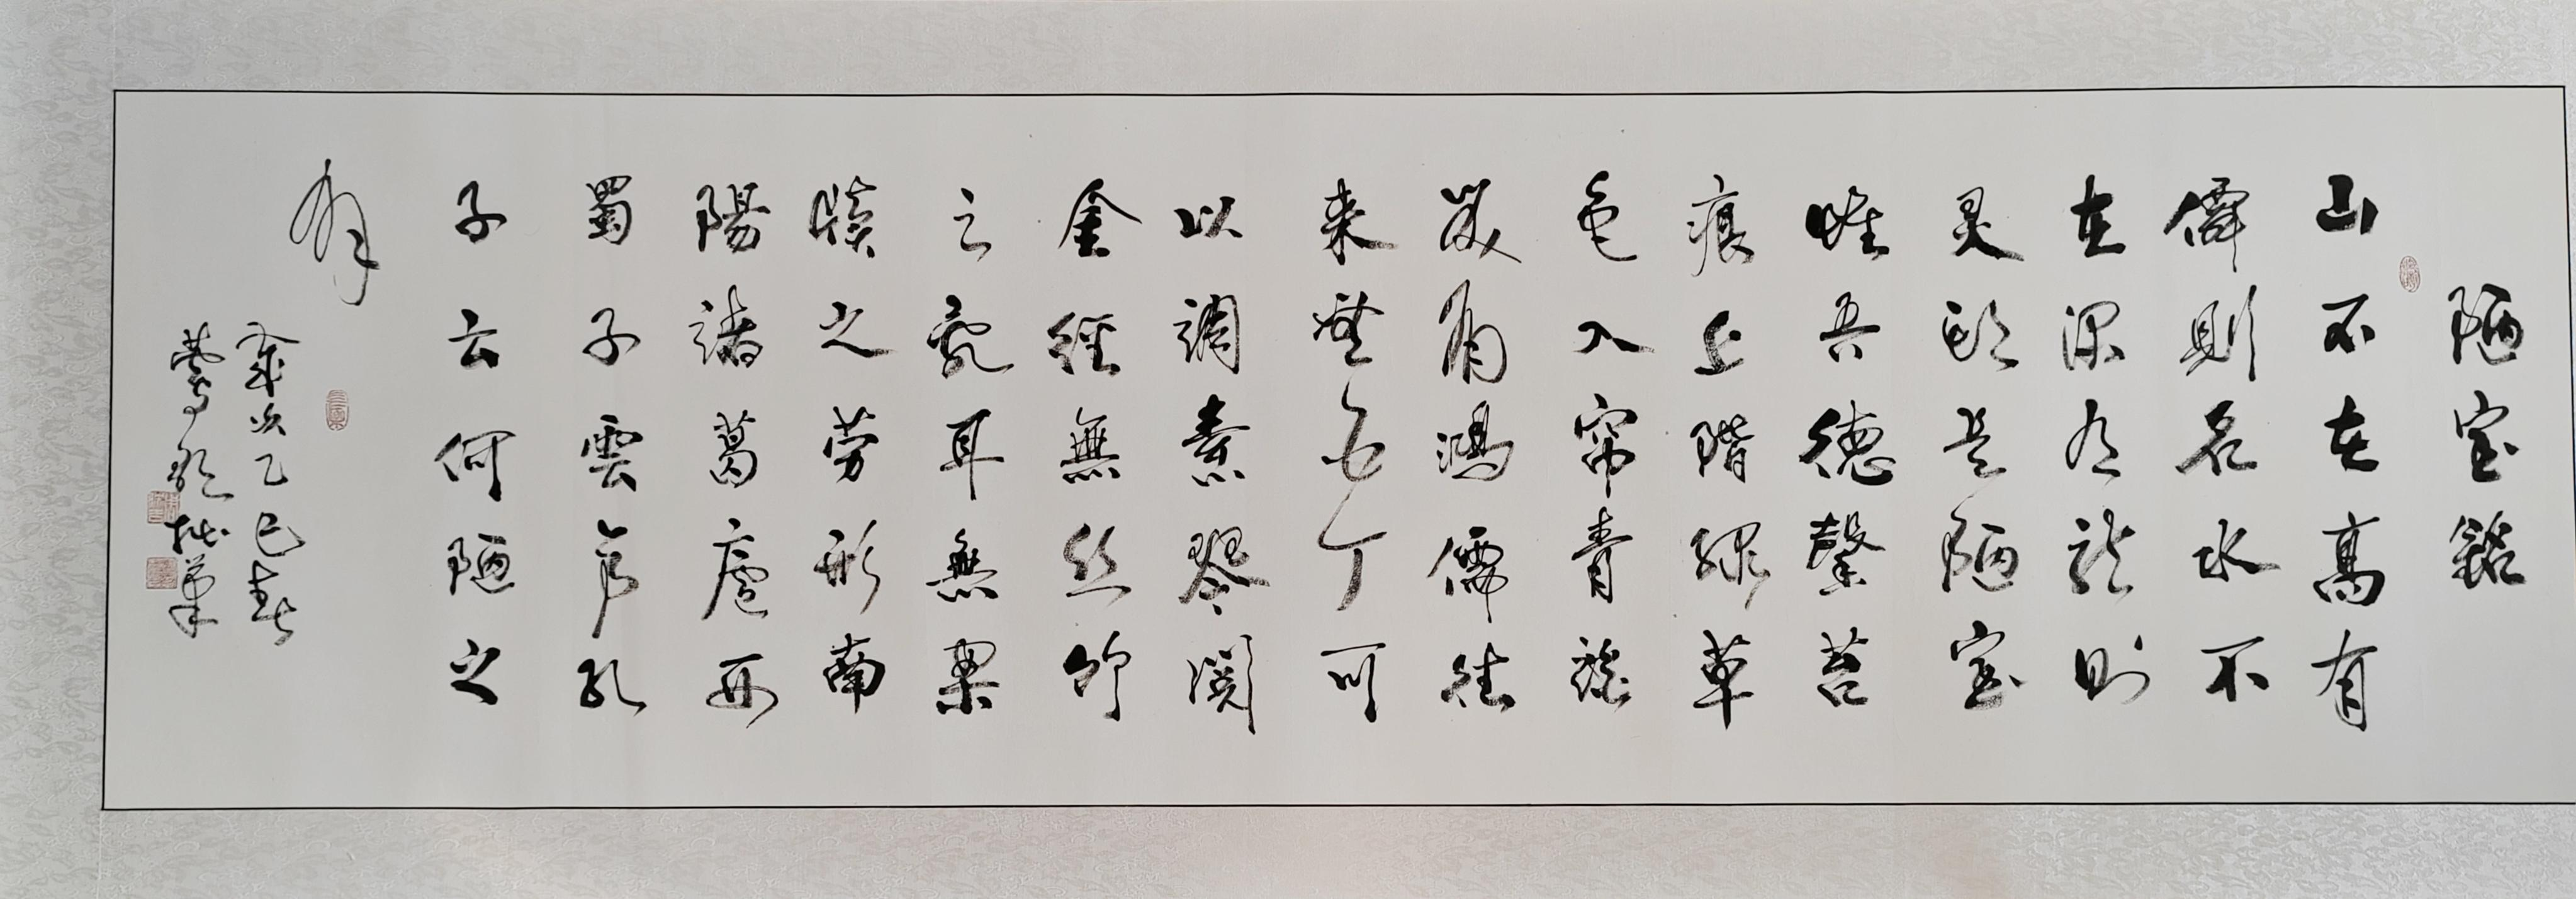 陋室銘
山不在高有
僊則名水不
在深有龍則
灵斯是陋室
唯吾德馨苔
痕上階绿草
色入帘青談
笑有鴻儒往
来無白丁可
以調素琴閱
金經無丝竹
之亂耳無案
牘之劳形南
陽諸葛廬西
蜀子雲亭孔
子云何陋之
有
歲次乙巳春
拙筆